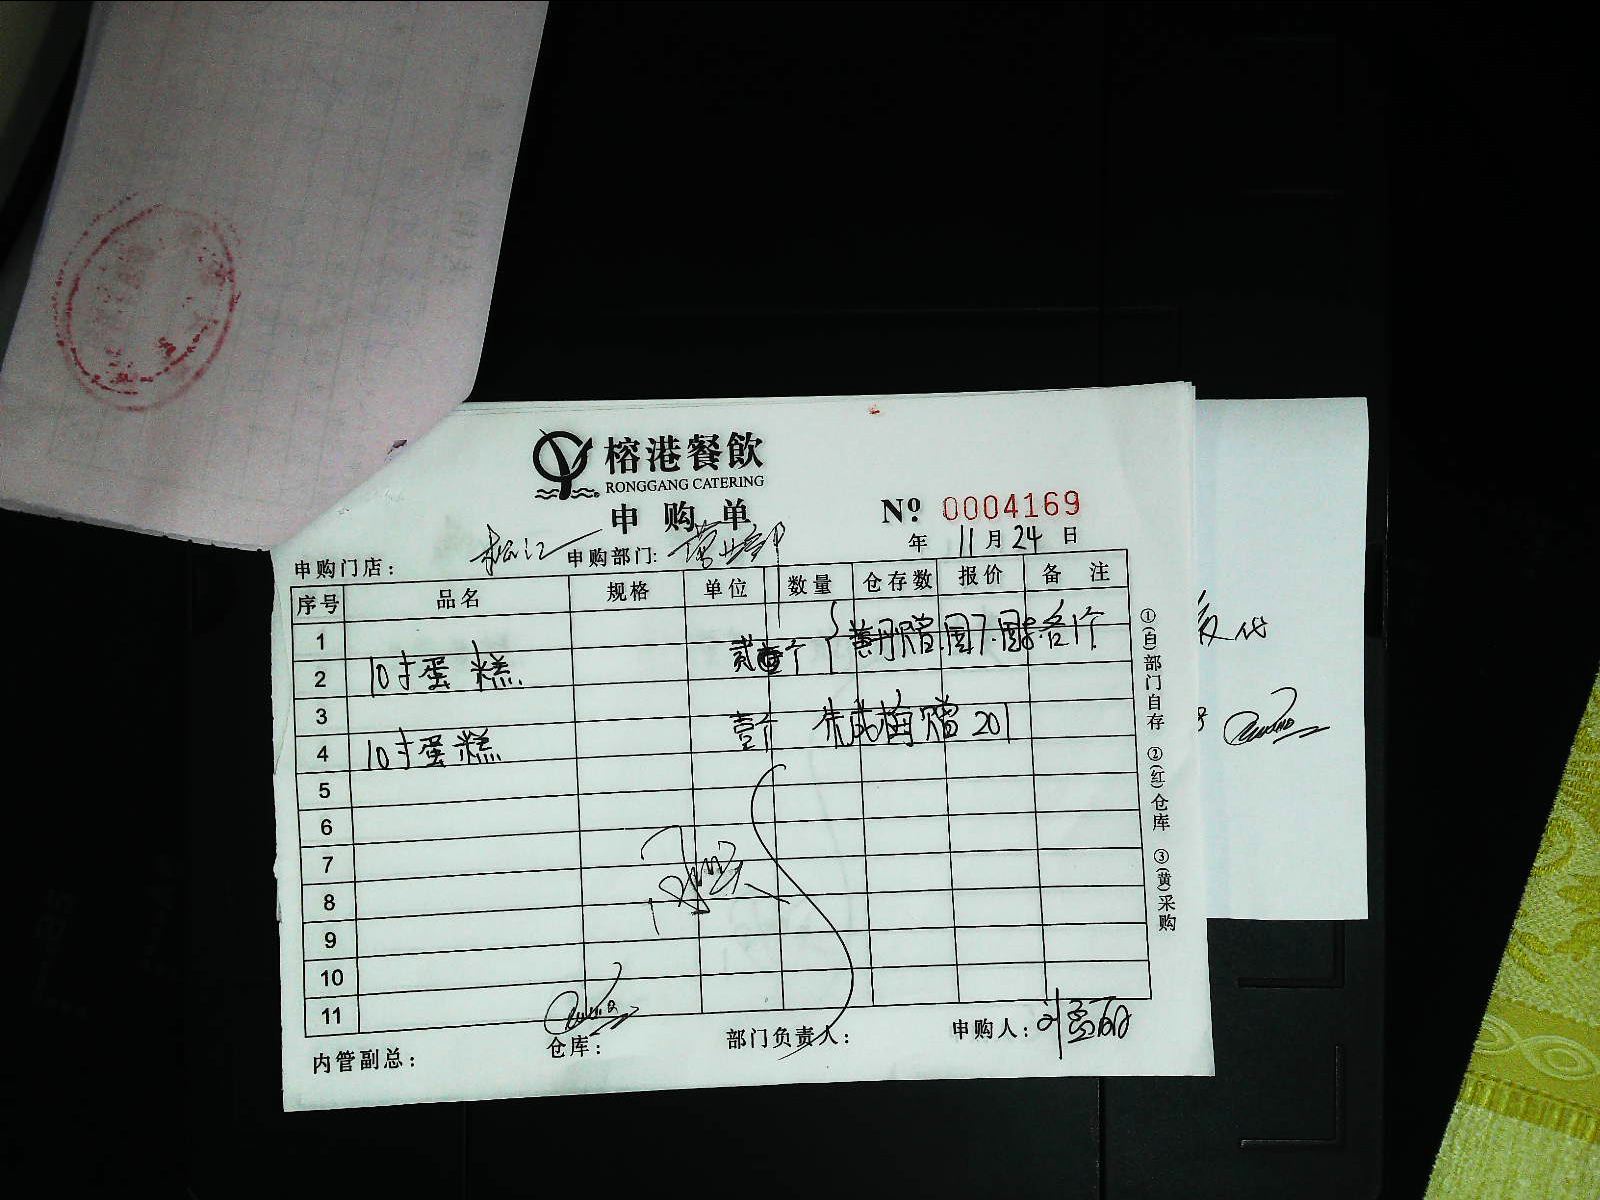 榕港餐飲
RONGGANG CATERING
申购单
Nº 0004169
年 11月24日
申购门店：松江 申购部门：营业部
序号 品名 规格 单位 数量 仓存数 报价 备注
1
2 10寸蛋糕 贰个
3
4 10寸蛋糕 壹个 201
5
6
7
8
9
10
11
内管副总： 仓库： 部门负责人： 申购人：
①(白)部门自存 ②(红)仓库 ③(黄)采购